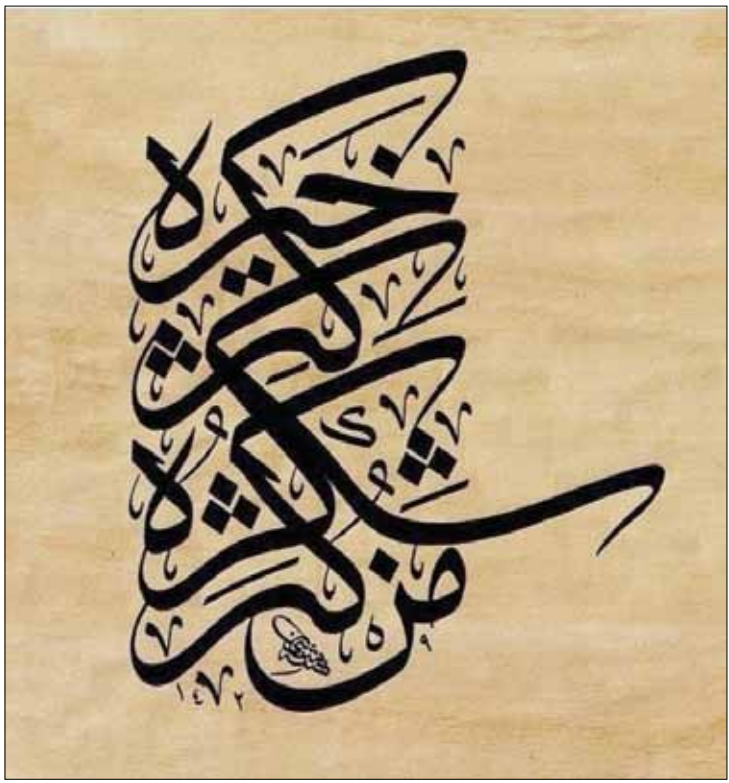 من كثر شكره كثر خيره